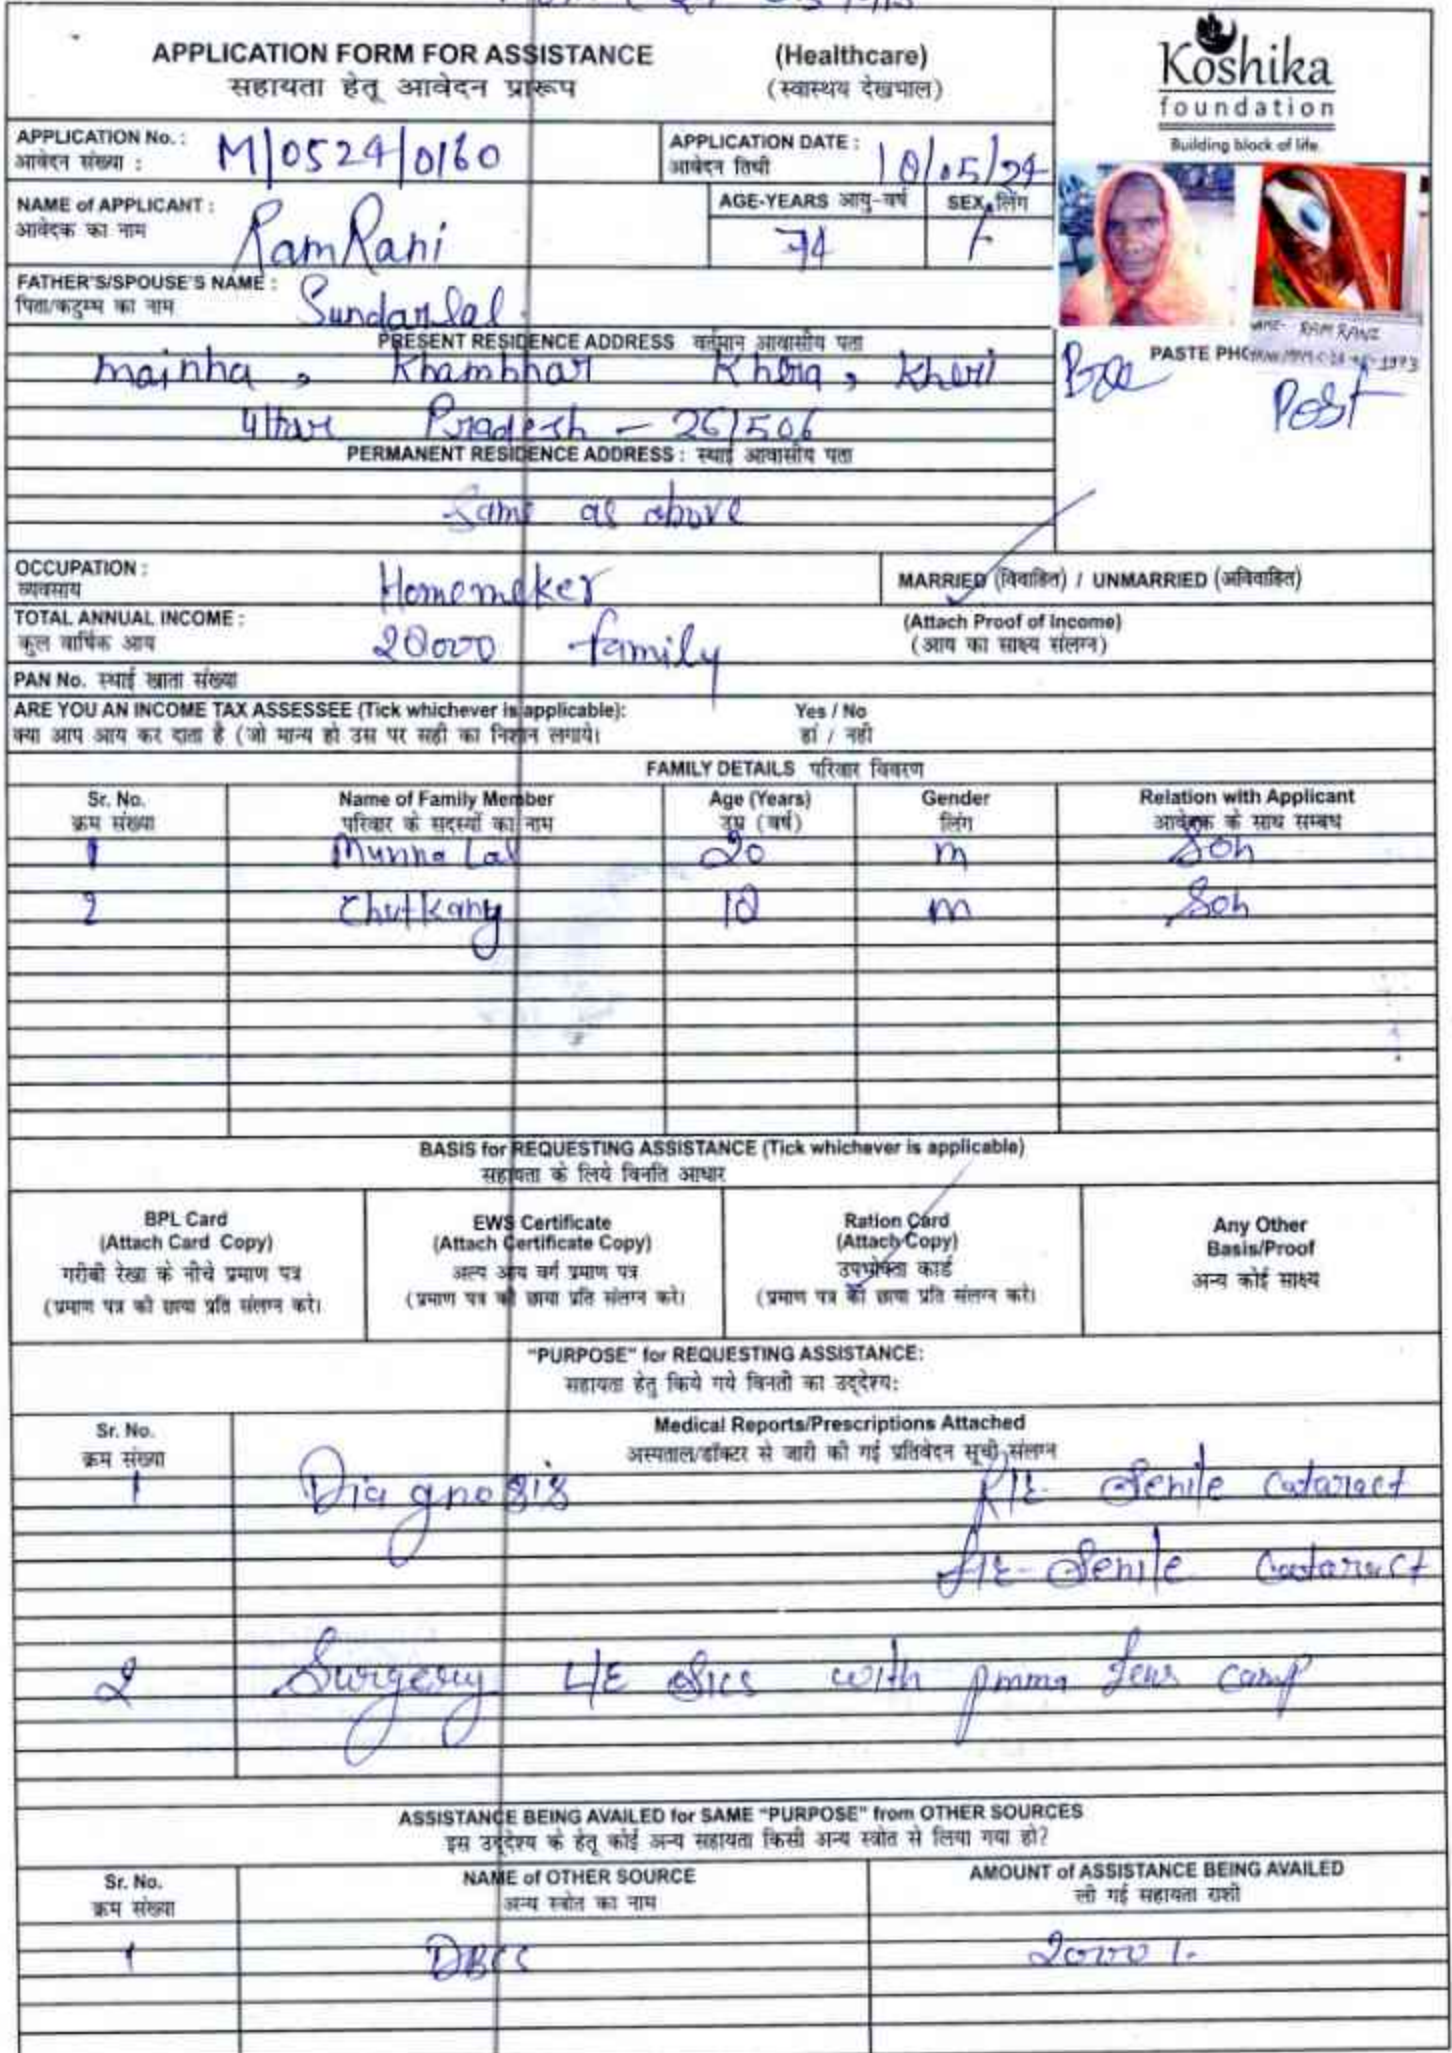 APPLICATION FORM FOR ASSISTANCE (Healthcare)
सहायता हेतू आवेदन प्रारूप (स्वास्थय देखभाल)
Koshika
foundation
Building block of life.
APPLICATION No. : M/0524/0160
आवेदन संख्या :
APPLICATION DATE : 10/05/24
आवेदन तिथी
NAME of APPLICANT : RamRani
आवेदक का नाम
AGE-YEARS आयु-वर्ष 74
SEX लिंग F
FATHER'S/SPOUSE'S NAME : Sundarlal
पिता/कटुम्भ का नाम
RAM RANI
PASTE
Post
PRESENT RESIDENCE ADDRESS वर्तमान आवासीय पता
Mainha, Khambhar Khera, Kheri
Uttar Pradesh - 261506
PERMANENT RESIDENCE ADDRESS : स्थाई आवासीय पता
Same as above
OCCUPATION : Homemaker
व्यवसाय
MARRIED (विवाहित) / UNMARRIED (अविवाहित)
TOTAL ANNUAL INCOME : family
कुल वार्षिक आय
(Attach Proof of Income)
(आय का साक्ष्य संलग्न)
PAN No. स्थाई खाता संख्या
ARE YOU AN INCOME TAX ASSESSEE (Tick whichever is applicable): Yes / No
क्या आप आय कर दाता है (जो मान्य हो उस पर सही का निशान लगाये। हां / नही
FAMILY DETAILS परिवार विवरण
Sr. No. Name of Family Member Age (Years) Gender Relation with Applicant
क्रम संख्या परिवार के सदस्यों का नाम उम्र (वर्ष) लिंग आवेदक के साथ सम्बध
1 Munna Lal 20 m Son
2 Chutkany m Son
BASIS for REQUESTING ASSISTANCE (Tick whichever is applicable)
सहायता के लिये विनति आधार
BPL Card
(Attach Card Copy)
गरीबी रेखा के नीचे प्रमाण पत्र
(प्रमाण पत्र की छाया प्रति संलग्न करे।
EWS Certificate
(Attach Certificate Copy)
अल्प आय वर्ग प्रमाण पत्र
(प्रमाण पत्र की छाया प्रति संलग्न करे।
Ration Card
(Attach Copy)
उपभोक्ता कार्ड
(प्रमाण पत्र की छाया प्रति संलग्न करे।
Any Other
Basis/Proof
अन्य कोई साक्ष्य
"PURPOSE" for REQUESTING ASSISTANCE:
सहायता हेतु किये गये विनती का उद्देश्य:
Sr. No. Medical Reports/Prescriptions Attached
क्रम संख्या अस्पताल/डॉक्टर से जारी की गई प्रतिवेदन सूची संलग्न
1 Diagnosis R/E- Senile Cataract
L/E- Senile Cataract
2 Surgery L/E Sics with pmma lens camp
ASSISTANCE BEING AVAILED for SAME "PURPOSE" from OTHER SOURCES
इस उद्देश्य के हेतू कोई अन्य सहायता किसी अन्य स्त्रोत से लिया गया हो?
Sr. No. NAME of OTHER SOURCE AMOUNT of ASSISTANCE BEING AVAILED
क्रम संख्या अन्य स्त्रोत का नाम ली गई सहायता राशी
1 DBCS